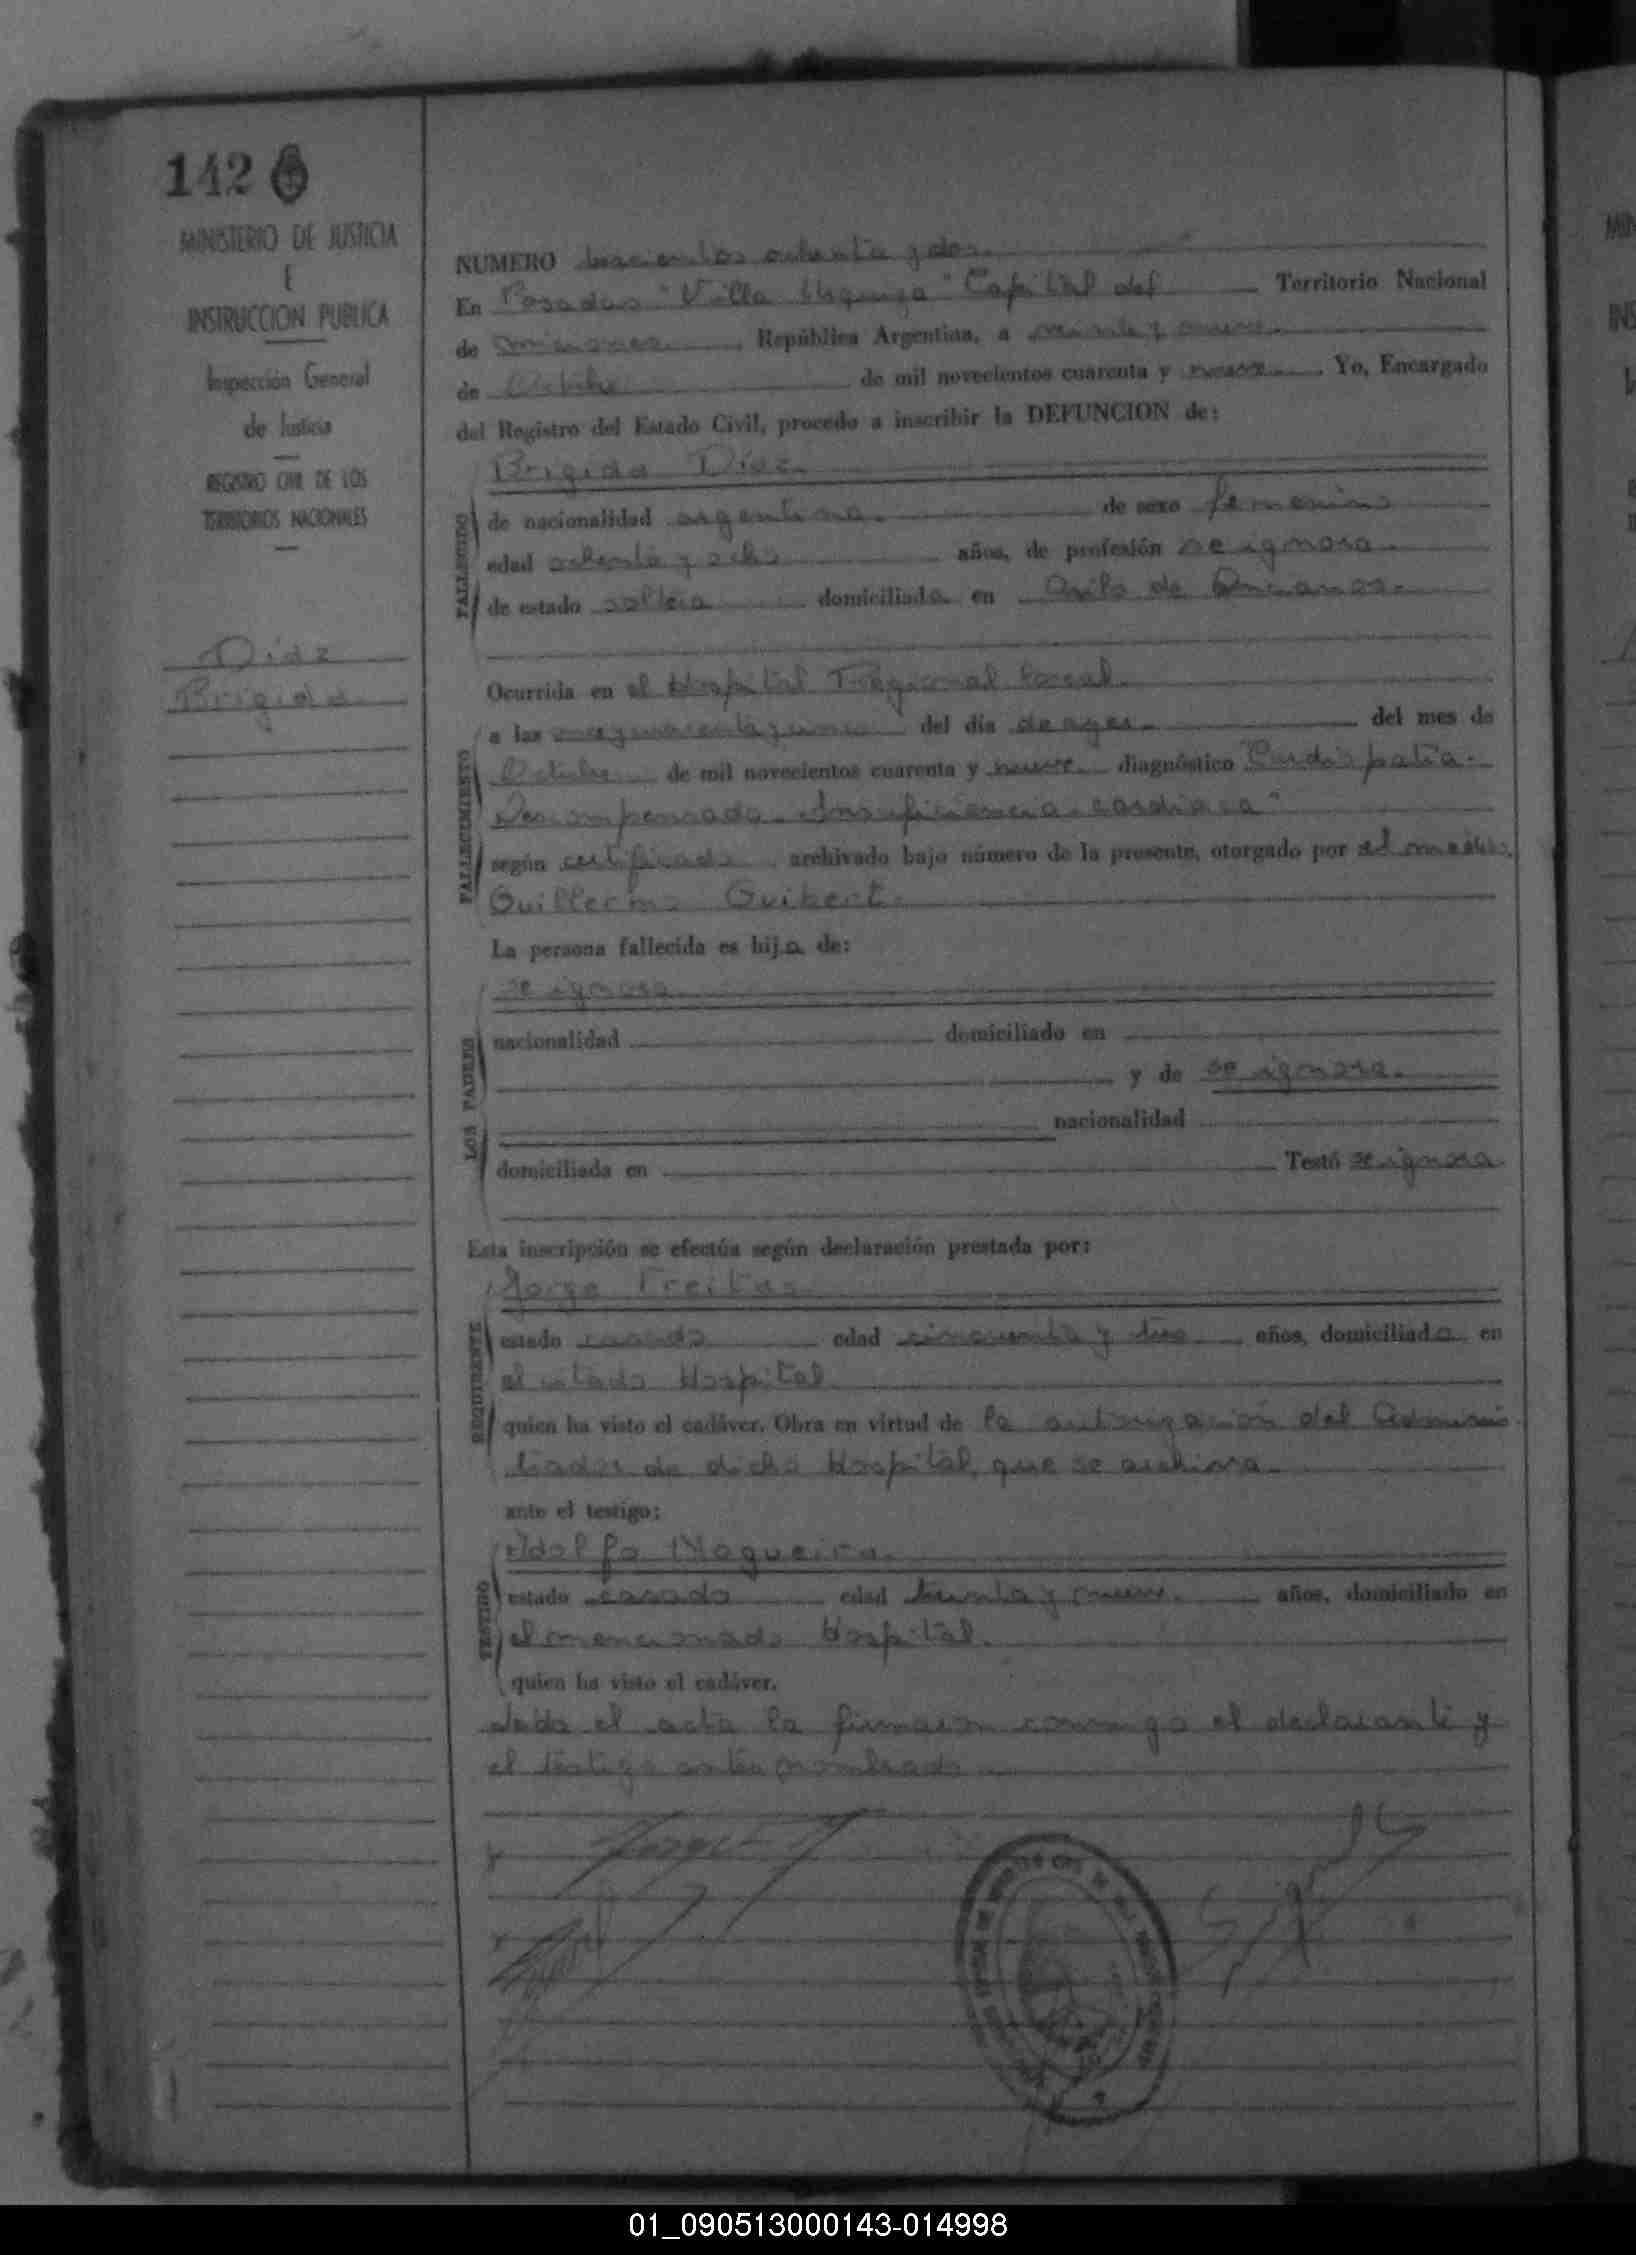 142
MINISTERIO DE JUSTICIA
E
INSTRUCCION PUBLICA
Inspección General
de Justicia
REGISTRO CIVIL DE LOS
TERRITORIOS NACIONALES
Diaz
Brigida
NUMERO trescientos ochenta y dos.
En Posadas "Villa Urquiza" Capital del Territorio Nacional
de Misiones República Argentina, a veinte y nueve
de Octubre de mil novecientos cuarenta y nueve Yo, Encargado
del Registro del Estado Civil, procedo a inscribir la DEFUNCION de:
Brigida Diaz
FALLECIDO
de nacionalidad argentina. de sexo femenino
edad ochenta y ocho años, de profesión se ignora.
de estado soltera domiciliada en Asilo de Ancianos.
Ocurrida en el Hospital Regional local.
FALLECIMIENTO
a las del día de ayer. del mes de
Octubre de mil novecientos cuarenta y nueve diagnóstico "Cardiopatia
Descompensada. Insuficiencia cardiaca"
según certificado archivado bajo número de la presente, otorgado por el médico
Guillermo Guibert.
La persona fallecida es hija de:
LOS PADRES
se ignora
nacionalidad domiciliado en
y de se ignora.
nacionalidad
domiciliada en Testó se ignora
Esta inscripción se efectúa según declaración prestada por:
REQUIRENTE
Jorge Freitas
estado casado edad cincuenta y tres años, domiciliado en
el citado Hospital
quien ha visto el cadáver. Obra en virtud de la autorización del Adminis
trador de dicho Hospital, que se archiva.
ante el testigo:
TESTIGO
Adolfo Nogueira.
estado casado edad treinta y nueve. años, domiciliado en
el mencionado Hospital.
quien ha visto el cadáver.
Leida el acta la firmaron conmigo el declarante y
el testigo antes nombrado
01_090513000143-014998